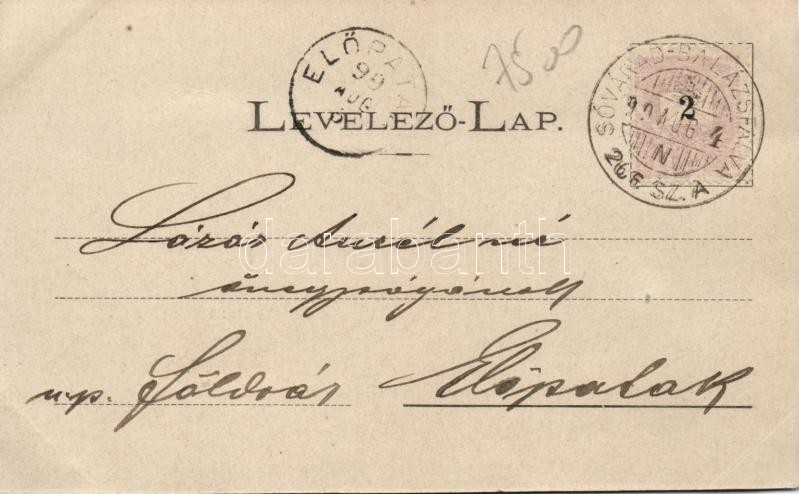 75 00
ELŐPATA
99
AUG
SÓVÁRAD-BALÁZSFALVA
2
99 AUG 4
N
266 SZ.A
LEVELEZŐ-LAP.
Lázár Aurél né
őnagyságának
u.p. Földvár Előpatak
darabanth